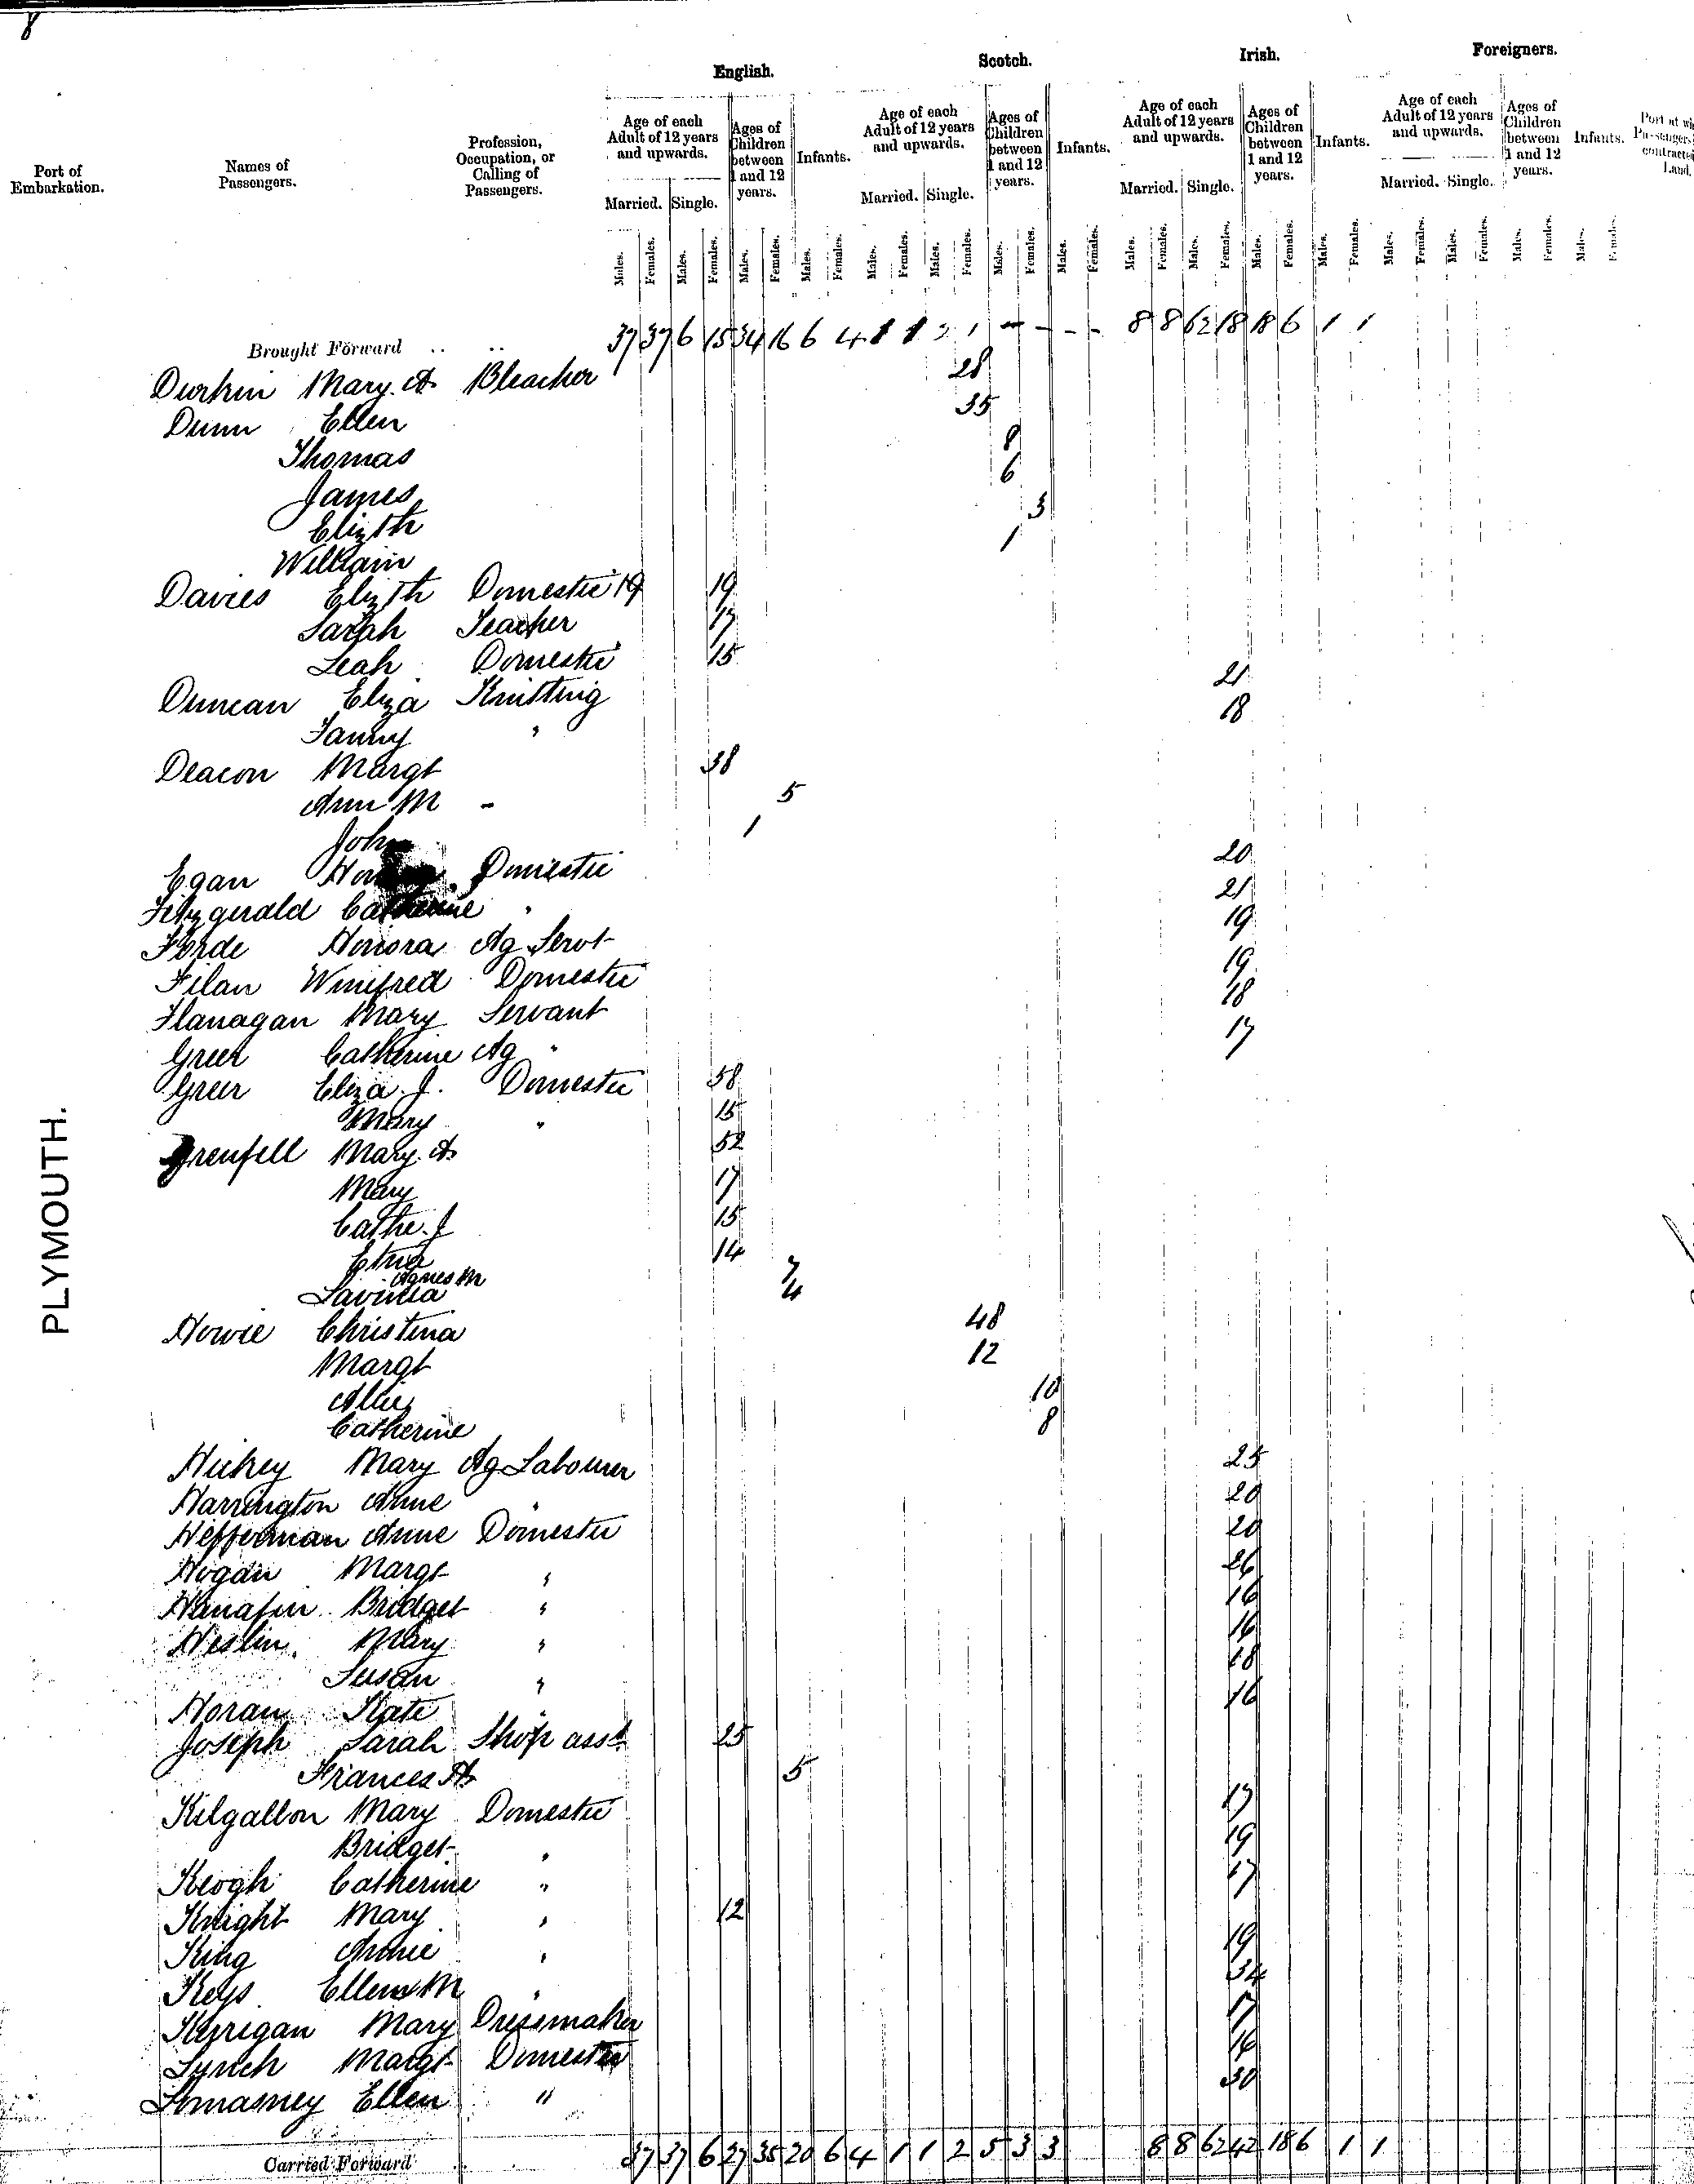 8
English.
Scotch.
Irish.
Foreigners.
Port of Embarkation.
Names of Passengers.
Profession, Occupation, or Calling of Passengers.
Age of each Adult of 12 years and upwards.
Ages of Children between 1 and 12 years.
Infants.
Age of each Adult of 12 years and upwards.
Ages of Children between 1 and 12 years.
Infants.
Age of each Adult of 12 years and upwards.
Ages of Children between 1 and 12 years.
Infants.
Age of each Adult of 12 years and upwards.
Ages of Children between 1 and 12 years.
Infants.
Married. Single. Married. Single. Married. Single. Married. Single.
Males. Females. Males. Females. Males. Females. Males. Females. Males. Females. Males. Females. Males. Females. Males. Females. Males. Females. Males. Females. Males. Females. Males. Females. Males. Females. Males. Females. Males. Females. Males.
Brought Forward .. .. 37 37 6 15 34 16 6 4 1 1 2 1 - - - - 8 8 62 18 18 6 1 1
Durkin Mary. A. Bleacher 28
Dunn Ellen 35
Thomas 8
James 6
Elizth 3
William 1
Davies Elizth Domestic 19 19
Sarah Teacher 17
Leah Domestic 15
Duncan Eliza Knitting 21
Fanny " 18
Deacon Margt 38
Ann M - 5
John 1
Egan Domestic 20
Fitzgerald Catherine " 21
Forde Honora Ag Servt 19
Filan Winifred Domestic 19
Flanagan Mary Servant 18
Greer Catherine Ag " 17
Greer Eliza. J. Domestic 58
Mary " 15
Grenfell Mary. A. 52
Mary 17
Cathe. J 15
Etna 14
Agnes M 7
Lavinia 4
Howie Christina 48
Margt 12
Allie 10
Catherine 8
Hickey Mary Ag Labourer 25
Harrington Anne " 20
Hefferman Anne Domestic 20
Hogan Margt " 26
Hanafin Bridget " 16
Heslin Mary " 16
Susan " 18
Horan Kate " 16
Joseph Sarah Shop asst. 25
Frances A. 5
Kilgallon Mary Domestic 17
Bridget " 19
Keogh Catherine " 17
Knight Mary " 12
King Annie " 19
Keys Ellen M " 34
Kerrigan Mary Dressmaker 17
Lynch Margt Domestic 16
Lomasney Ellen " 30
Carried Forward .. 37 37 6 27 35 20 6 4 1 1 2 5 3 3 8 8 62 42 18 6 1 1
PLYMOUTH.